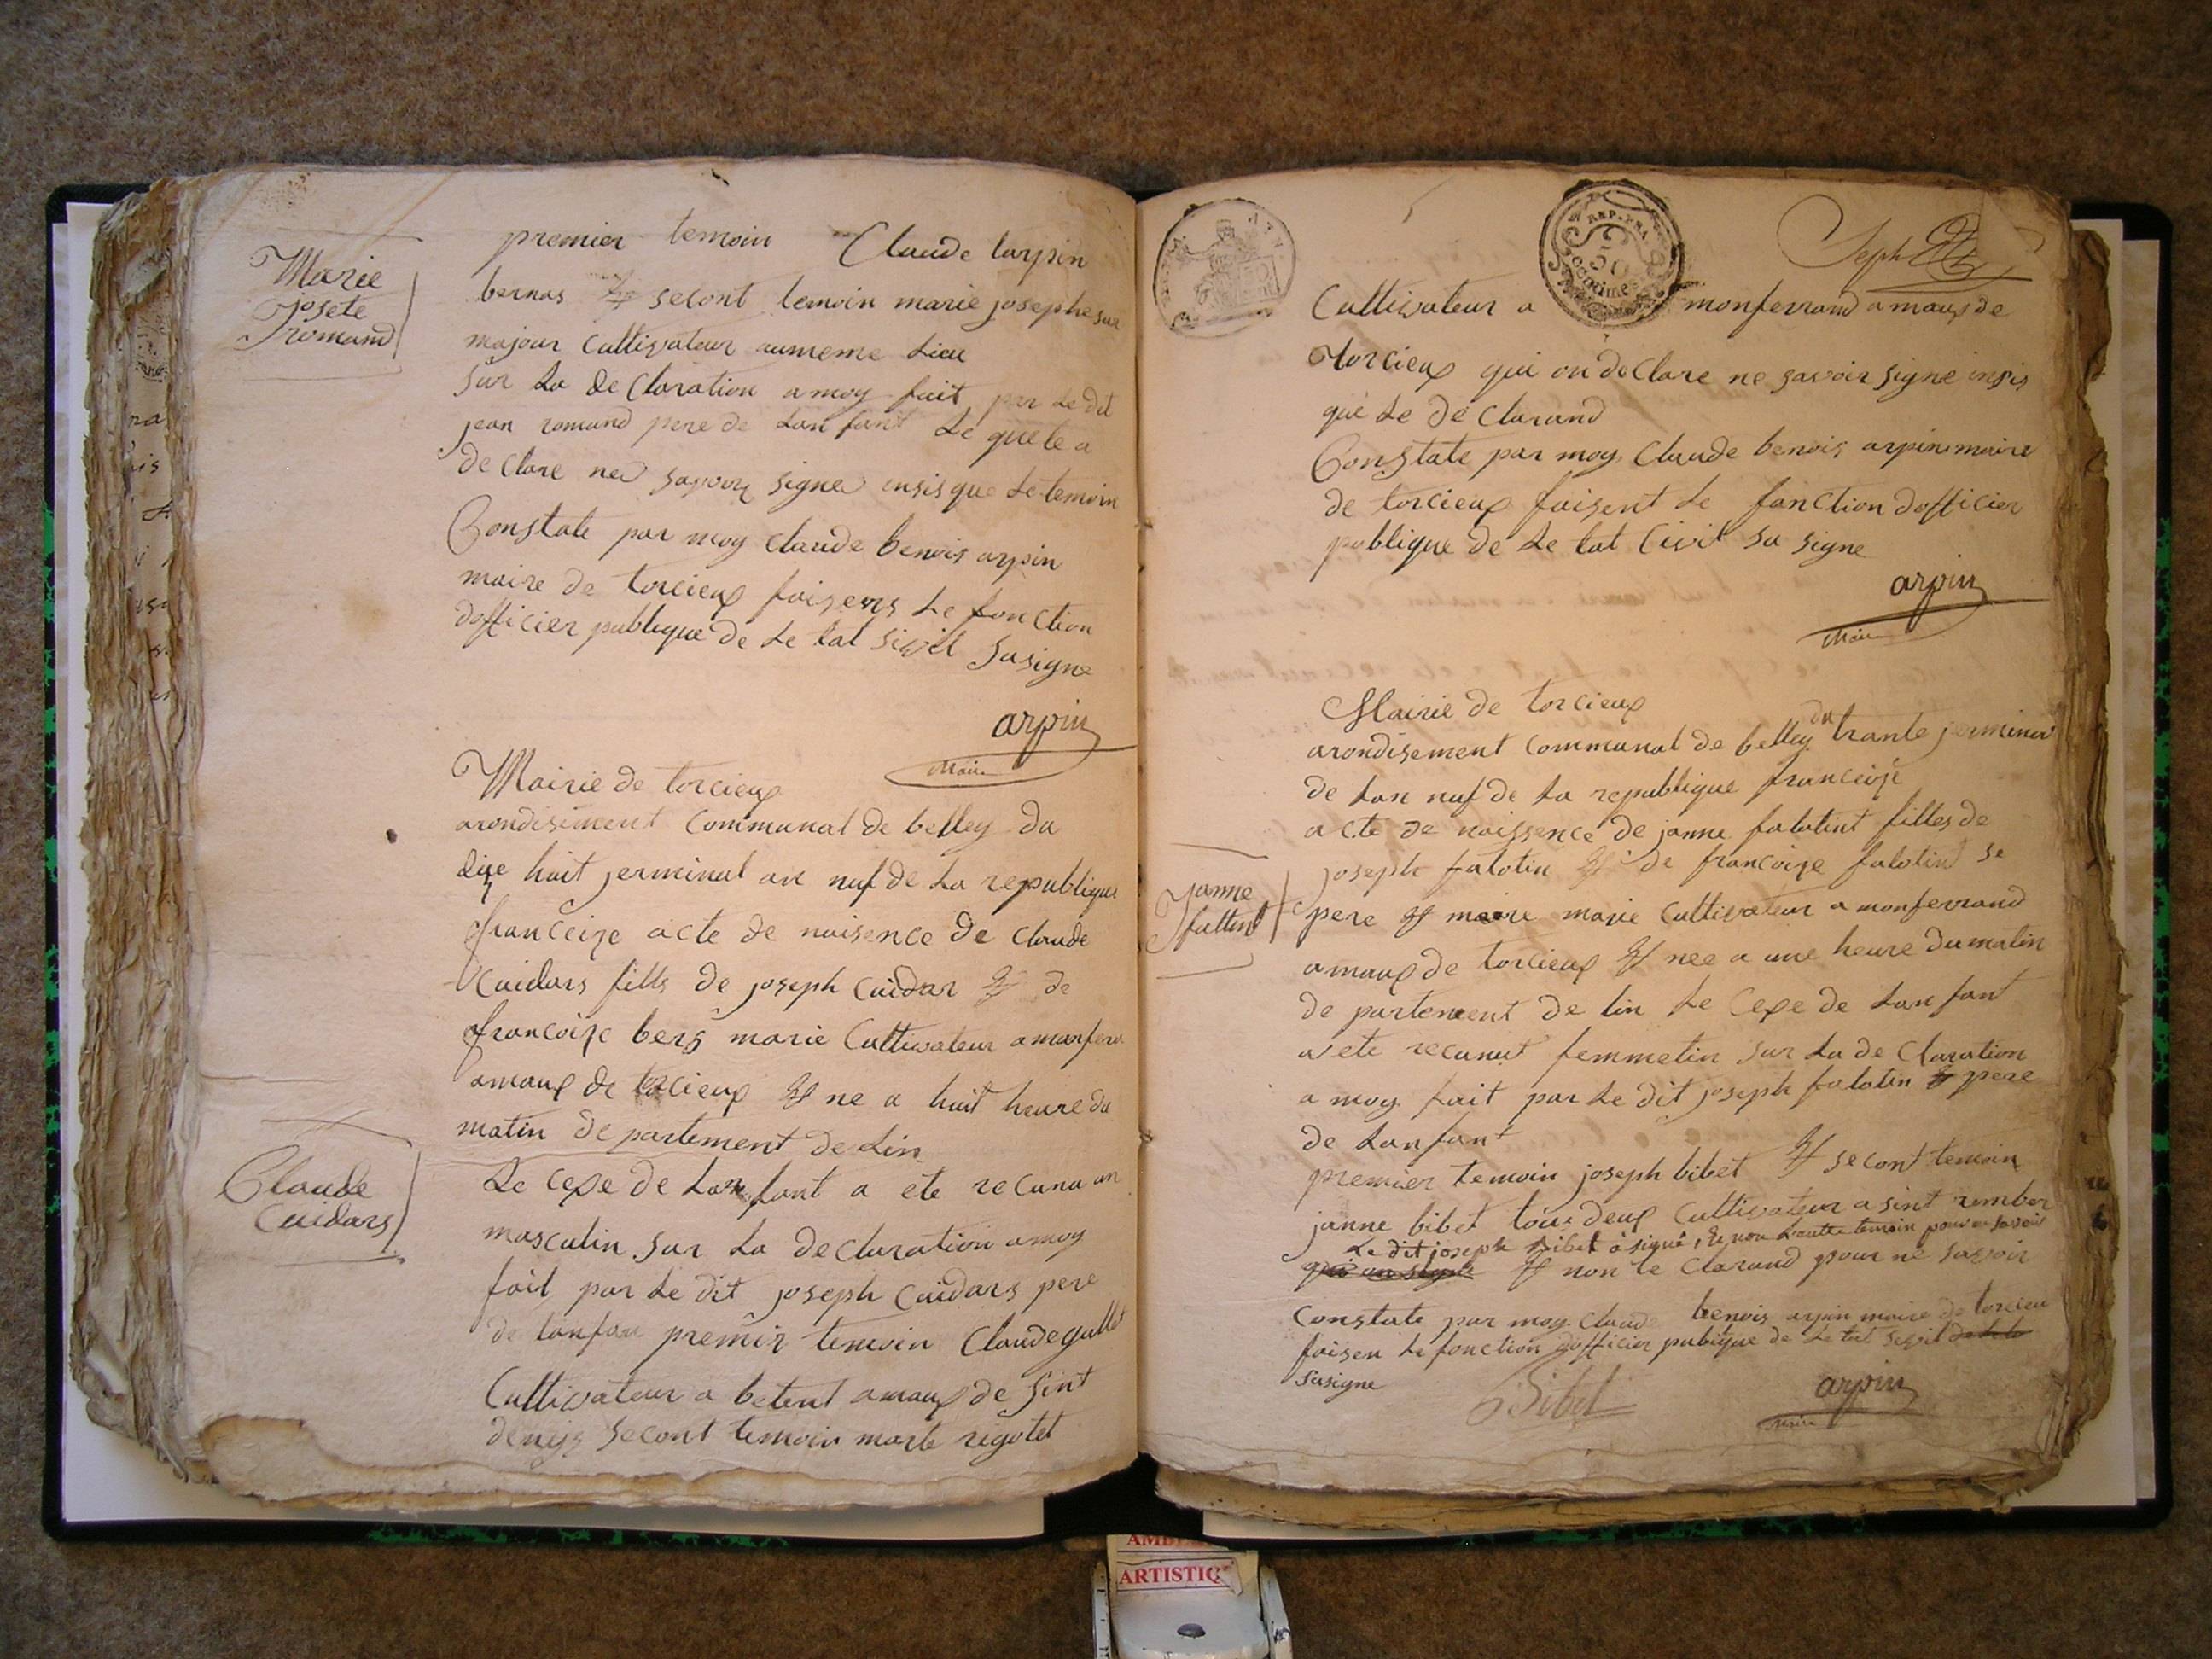 Marie
josete
romand
premier temoin Claude larpin
bernas & secont temoin marie josephe sur
majour Cultivateur aumeme Lieu
sur La de Claration amoy fait par Le dit
jean romand pere de Lan fant Le quele a
de Clare ne savoir signe insis que Le temoin
Constate par moy Claude benois arpin
maire de torcieux faisens Le fonction
dofficier publique de Le tat sivil sa signe
arpin
maire
Mairie de torcieux
arondisement Communal de belley du
dixe huit jerminal an nuf de La republique
franceize acte de naisence de Claude
Cuidars fills de joseph Cuidar & de
francoize bers marie Cultivateur a monfera
amaux de torcieux & ne a huit heure du
matin de partement de Lin
Claude
Cuidars
Le cexe de Lan fant a ete recunu un
masculin sur La de Claration amoy
fait par Le dit joseph Cuidars pere
de lanfan premir temoin Claude gullet
Cultivateur a betent amaux de sint
denijs secont temoin marte rigotet
REP. FRA.
50
centimes
Seph
Cultivateur a monferrand amaux de
torcieux qui on de Clare ne savoir signe insis
que Le de Clarand
Constate par moy Claude benois arpin maire
de torcieux faisent Le fonction dofficier
publique de Le tat Civil sa signe
arpin
maire
Mairie de torcieux
arondisement Communal de belley du trante jerminal
de Lan nuf de La republique franceize
acte de naissence de janne falotint filles de
joseph falotin & de francoize falotind se
Janne
faltint
pere & maire marie Cultivateur a monferrand
amaux de torcieux & nee a une heure du matin
de partement de lin Le Cexe de Lan fant
a ete recunut femmetin sur La de Claration
a moy fait par Le dit joseph falotin & pere
de Lan fant
premier temoin joseph bibet & secont temoin
janne bibet tous deux Cultivateur a sint rember
Le dit joseph bibet à signé, & non L'autre temoin pour ne savoir
qui on signe & non le Clarand pour ne savoir
Constate par moy Claude benois arpin maire de torcieu
faisen Le fonction dofficier publique de Le tat sevil de Le la
sasigne
Bibet
arpin
maire
AMB
ARTISTIQ